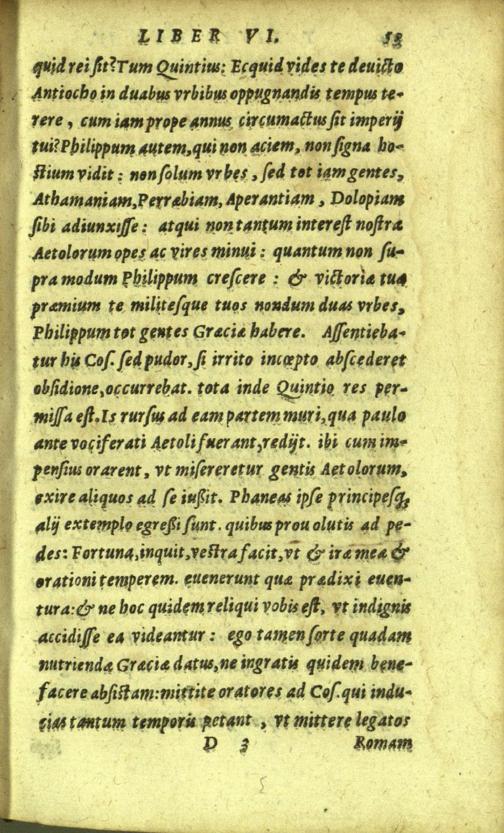 LIBER VI. 53
quid rei ſit? Tum Quintius: Ecquid vides te deuicto
Antiocho in duabus vrbibus oppugnandis tempus te-
rere, cum iam prope annus circumactus ſit imperij
tui? Philippum autem, qui non aciem, non ſigna ho-
ſtium vidit: non ſolum vrbes, ſed tot iam gentes,
Athamaniam, Perræbiam, Aperantiam, Dolopiam
ſibi adiunxiſſe: atqui non tantum intereſt noſtra
Aetolorum opes ac vires minui: quantum non ſu-
pra modum Philippum creſcere: & victoriæ tuæ
præmium te militeſque tuos nondum duas vrbes,
Philippum tot gentes Græciæ habere. Aſſentieba-
tur his Coſ. ſed pudor, ſi irrito incœpto abſcederet
obſidione, occurrebat. tota inde Quintio res per-
miſſa eſt. Is rurſus ad eam partem muri, qua paulo
ante vociferati Aetoli fuerant, redijt. ibi cum im-
penſius orarent, vt miſereretur gentis Aetolorum,
exire aliquos ad ſe iußit. Phaneas ipſe principeſq;
alij extemplo egreßi ſunt. quibus prouolutis ad pe-
des: Fortuna, inquit, veſtra facit, vt & iræ meæ &
orationi temperem. euenerunt quæ prædixi euen-
tura: & ne hoc quidem reliqui vobis eſt, vt indignis
accidiſſe ea videantur: ego tamen ſorte quadam
nutriendæ Græciæ datus, ne ingratis quidem bene-
facere abſiſtam: mittite oratores ad Coſ. qui indu-
cias tantum temporis petant, vt mittere legatos
D 3 Romam